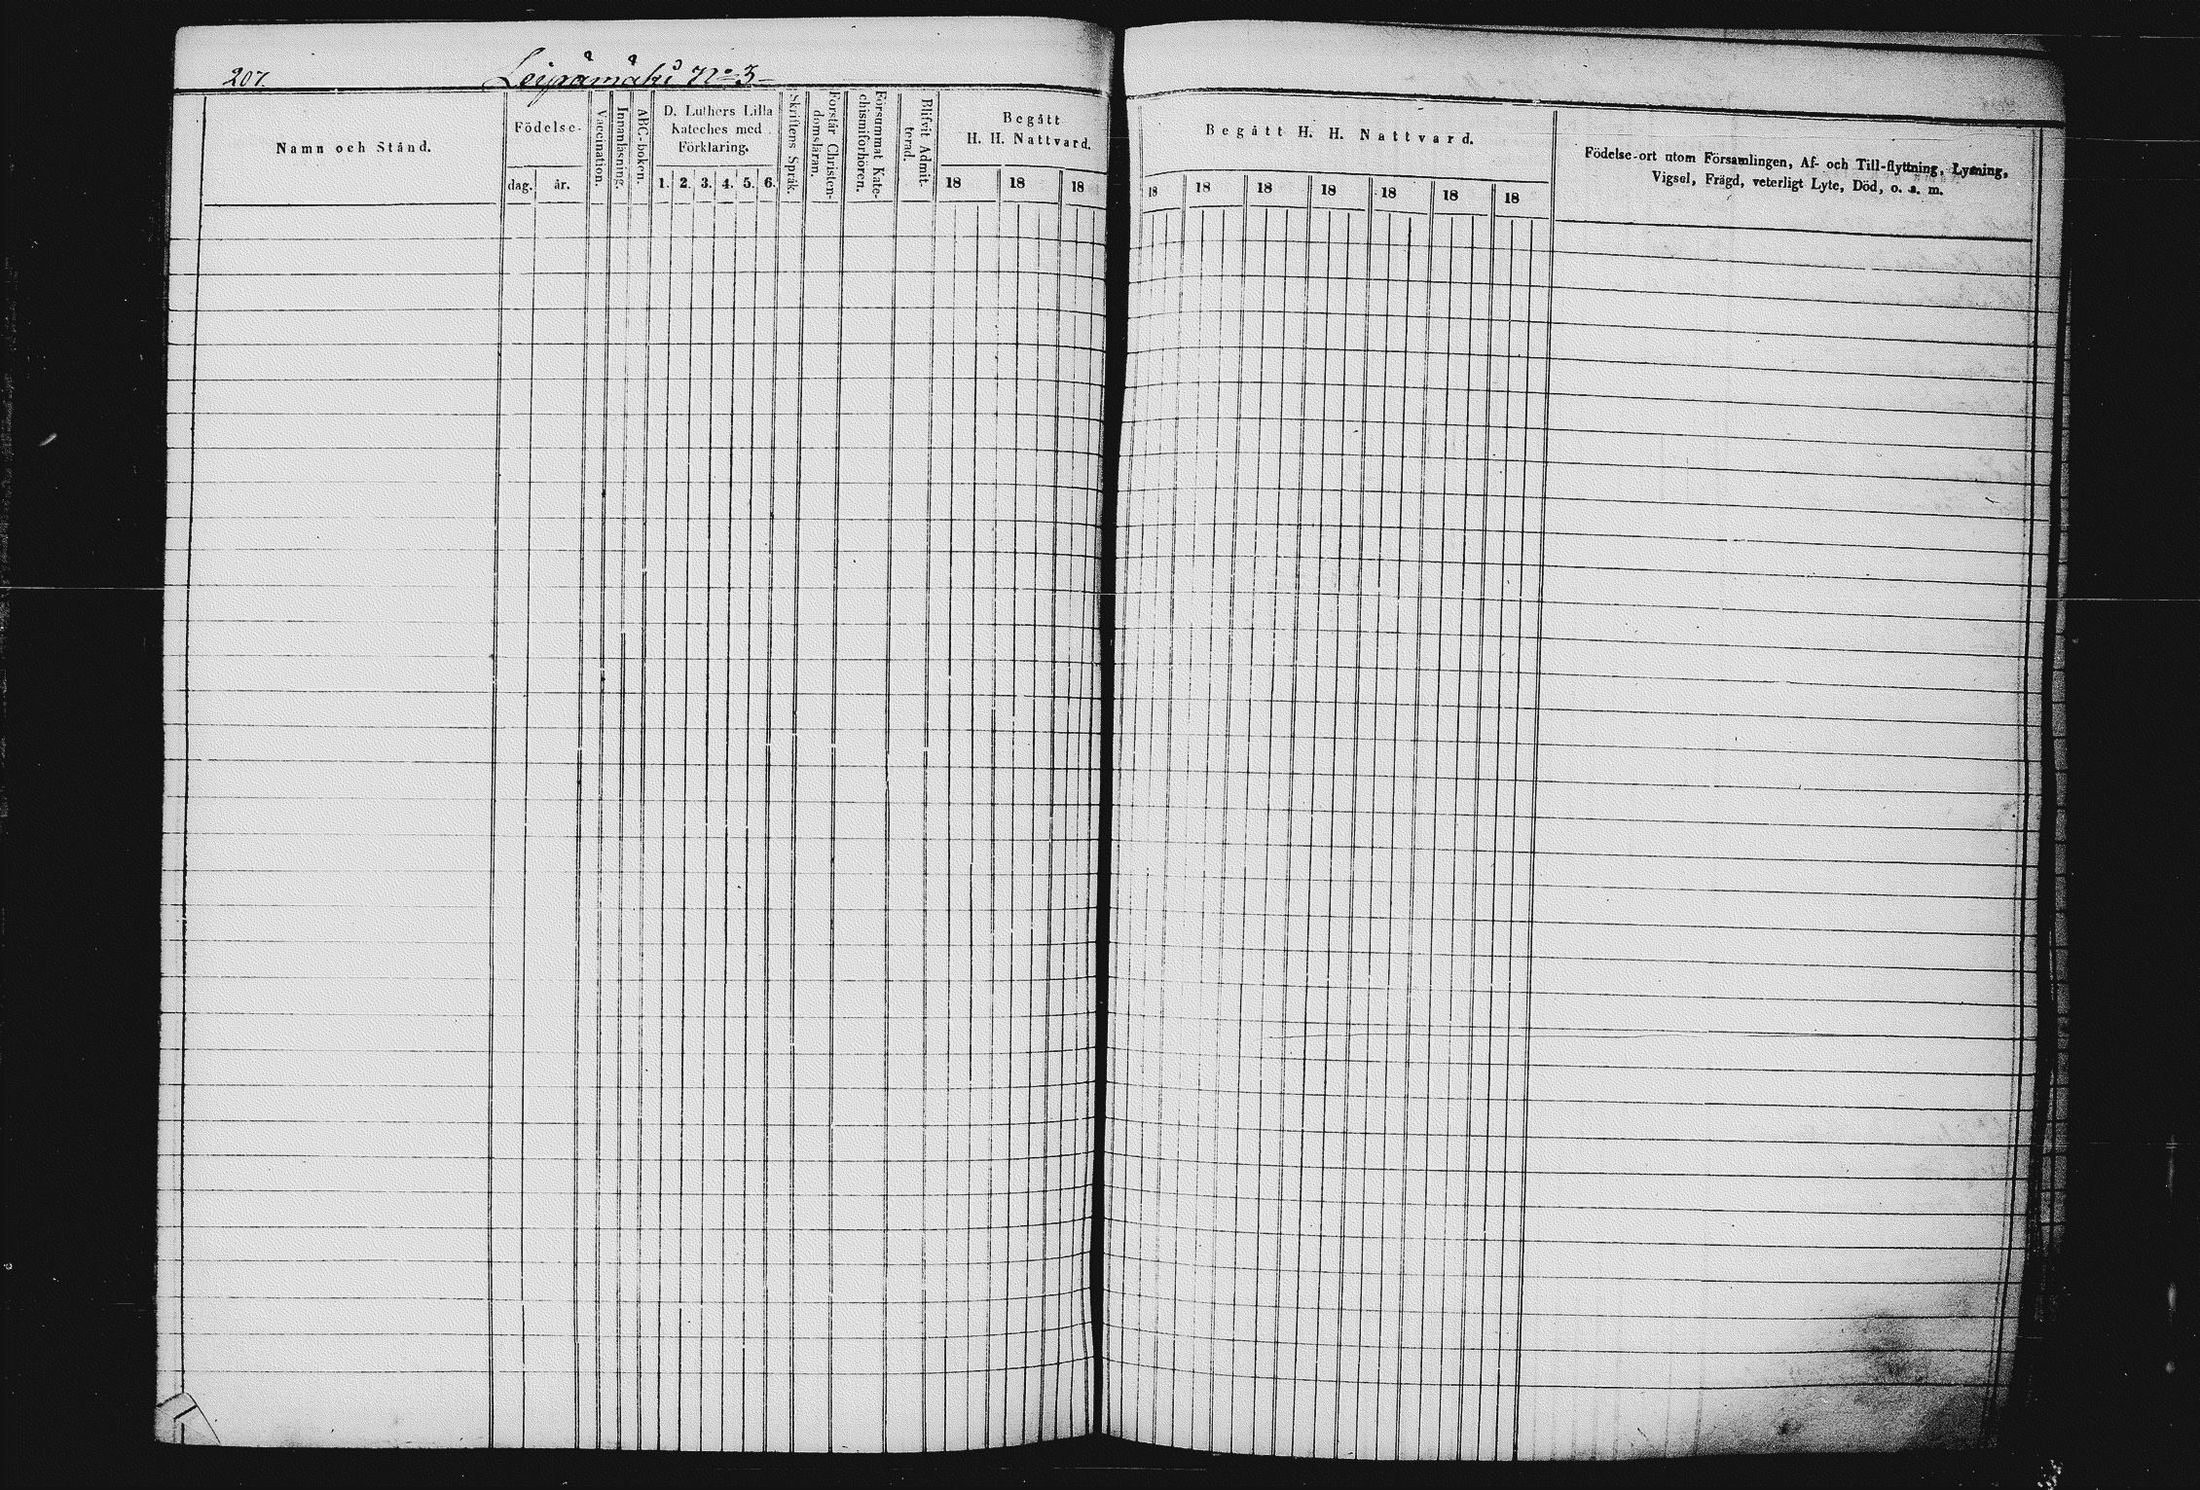 207.
Leipämäki No 3
Namn och Stånd.
Födelse-
dag.
år.
Vaccination.
Innanläsning.
ABC-boken.
D. Luthers Lilla
Kateches med
Förklaring.
1. 2. 3. 4. 5. 6.
Skriftens Språk.
Förstår Christen-
domsläran.
Försummat Kate-
chismiförhören.
Blifvit Admit-
terad.
Begått
H. H. Nattvard.
18 18 18
Begått H. H. Nattvard.
18 18 18 18 18 18 18
Födelse-ort utom Församlingen, Af- och Till-flyttning, Lysning,
Vigsel, Frägd, veterligt Lyte, Död, o. s. m.